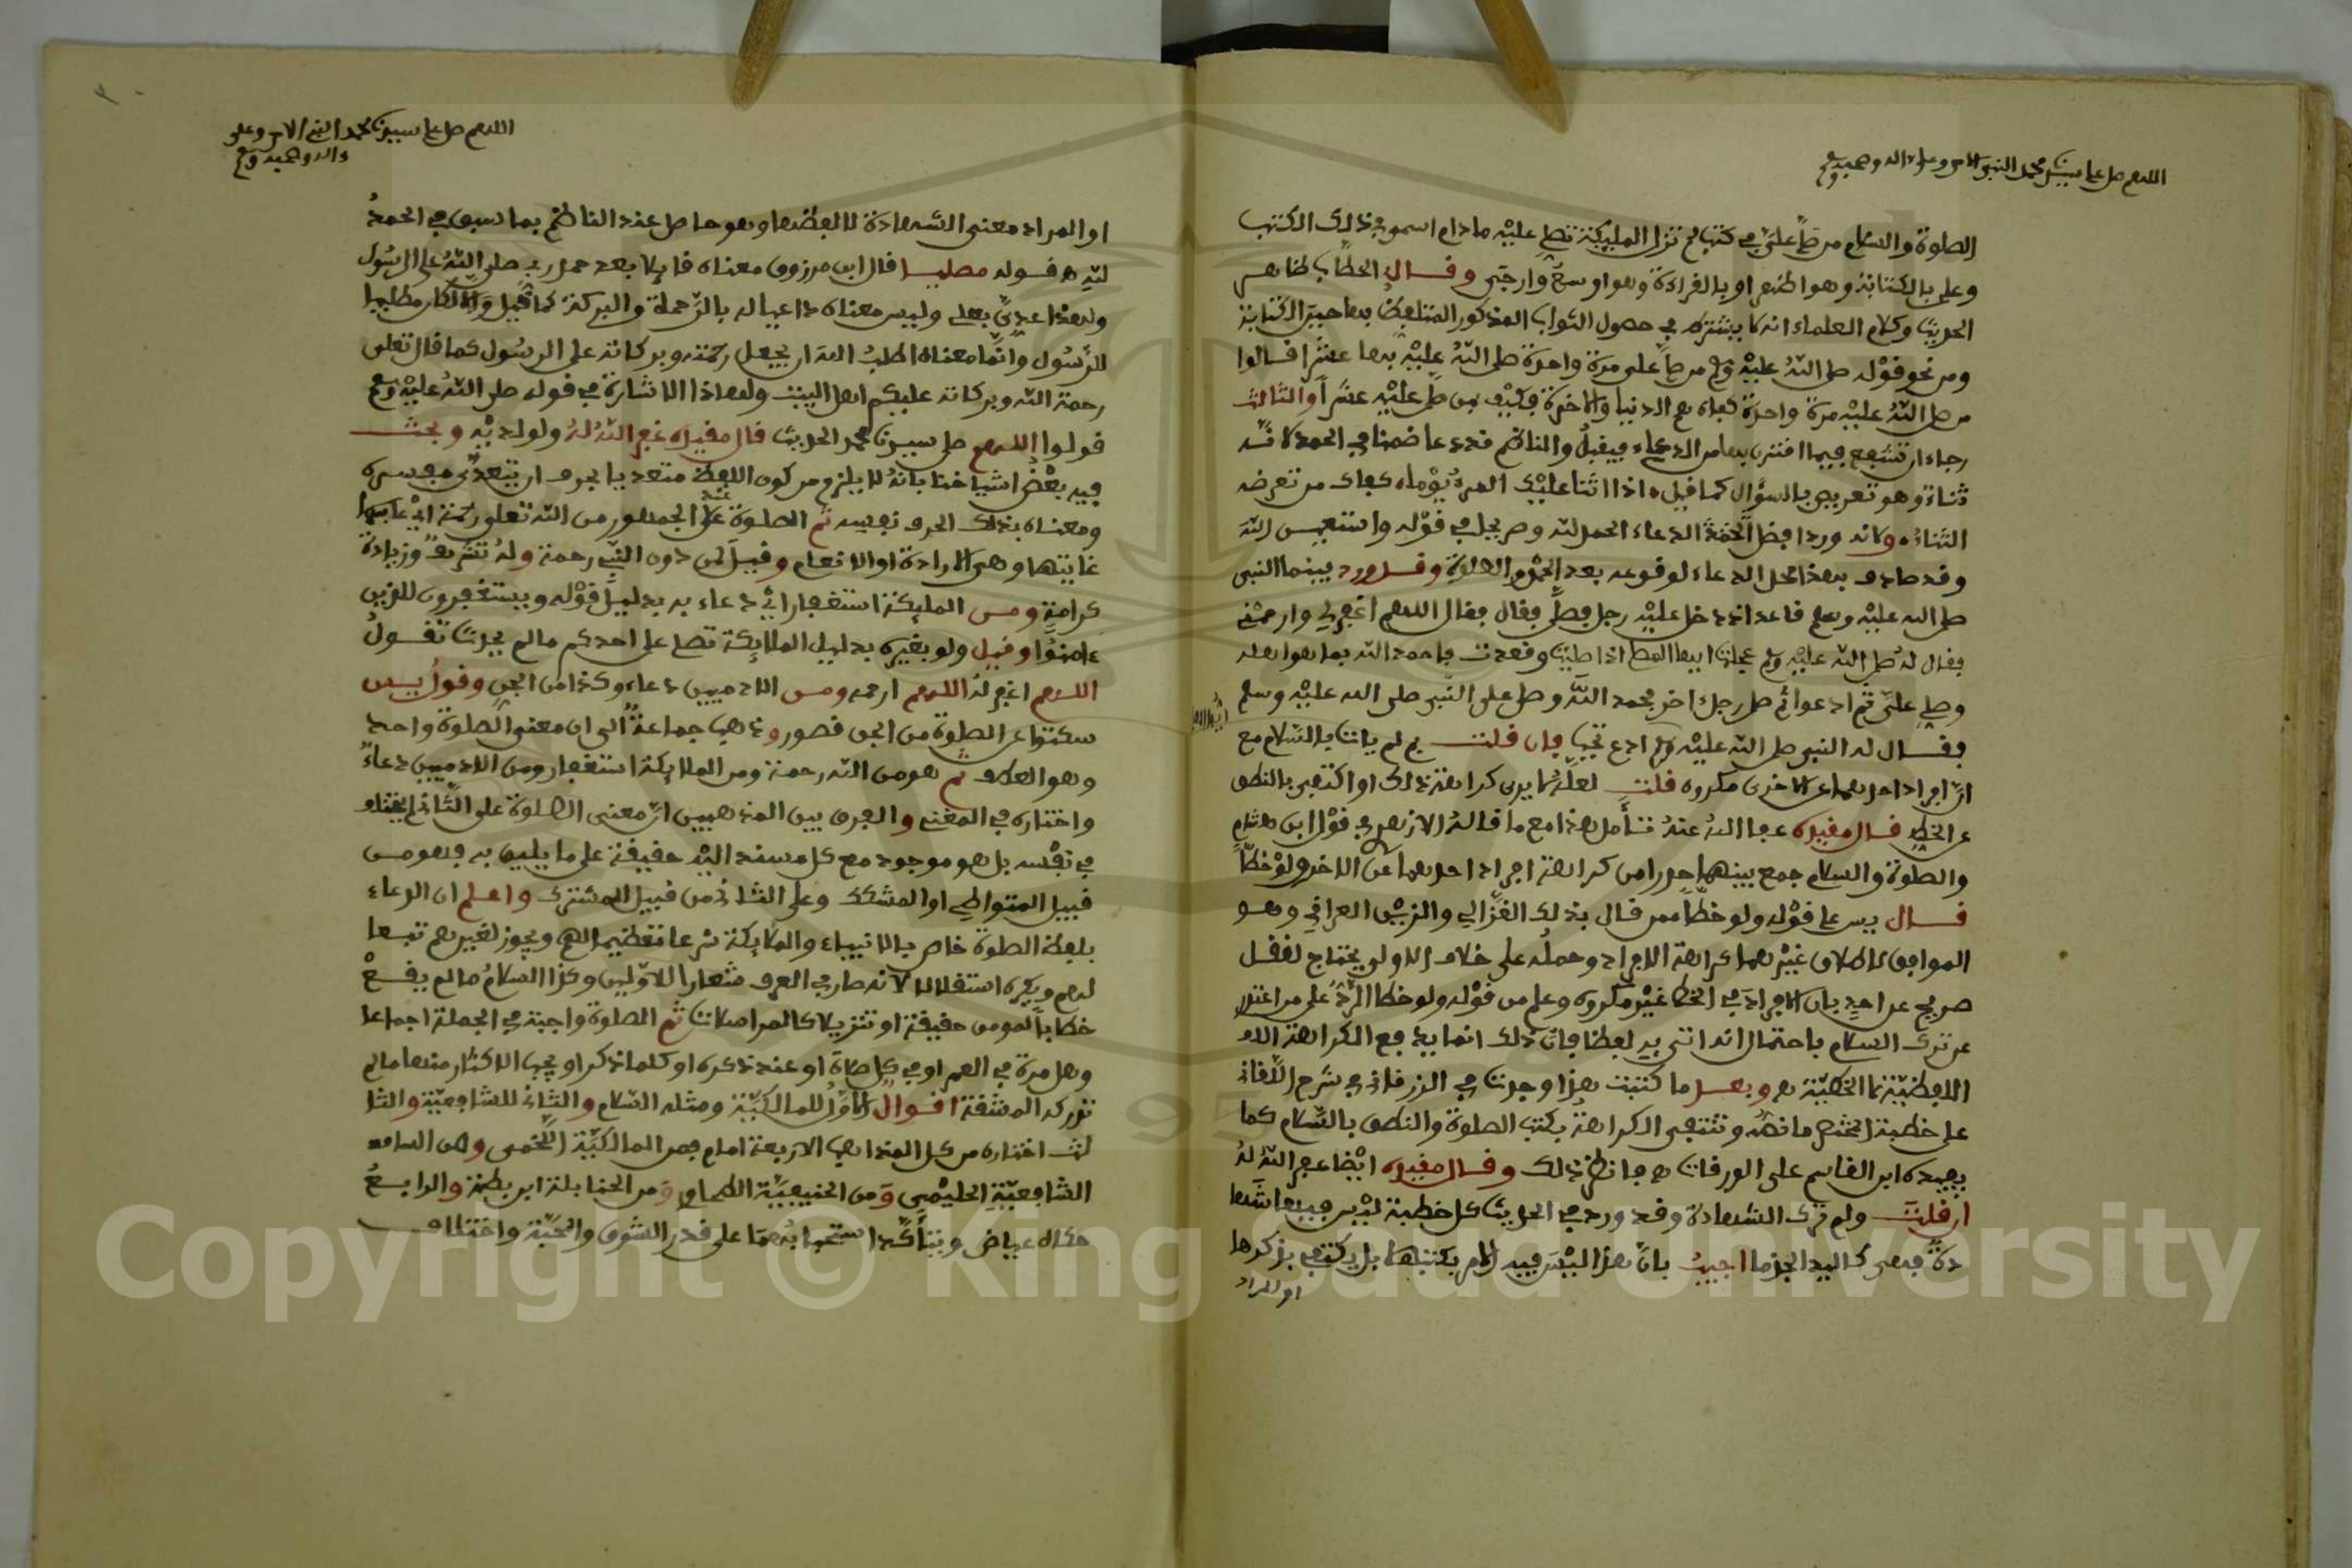 اللهم صل على سيدنا محمد النبي الامي وعلى ءاله وصحبه وسلم
الصلوة والسلام من صلى علي في كتاب لم تزل المليكة تصلي عليه ما دام اسمي في ذلك الكتاب
وعلى بالكتابة وهو اظهر او بالقراءة وهو اوسع وارجى وقال الحطاب ظاهر
الحديث وكلام العلماء انه لا يشترط في حصول الثواب المذكور التلفظ بها حين الكتابة
ومن نحو قوله صلى الله عليه وسلم من صلى علي مرة واحدة صلى الله عليه بها عشرا قالوا
من صلى الله عليه مرة واحدة كفاه هم الدنيا والاخرة فكيف من صلى عليه عشرا والثالث
رجاء ان تشفع فيما اقترن بها من الدعاء فيقبل والناظم قد دعا ضمنا في الحمد لانه
ثناء وهو تعريض بالسؤال كما قيل اذا اثنا عليك المرء يوما كفاك من تعرضه
الثناء وكانه ورد افضل الدعاء الحمد لله وصريحا في قوله واستعين الله
وقد صادف بهذا محل الدعاء لوقوعه بعد الحمد والصلوة وقد ورد بينما النبي
صلى الله عليه وسلم قاعدا اذ دخل عليه رجل فصلى فقال اللهم اغفر لي وارحمني
فقال له صلى الله عليه وسلم عجلت ايها المصلي اذا صليت وقعدت فاحمد الله بما هو اهله
وصل علي ثم ادعو ثم صلى رجل اخر فحمد الله وصلى على النبي صلى الله عليه وسلم
فقال له النبي صلى الله عليه وسلم ادع تجب فان قلت لم لم يات بالسلام مع
ان افراد احدهما عن الاخرى مكروه قلت لعله لا يرى كراهة ذلك او اكتفى بالنطق
عن الخط قال مقيده عفا الله عنه تامل هذا مع ما قاله الازهري في قول ابن هشام
والصلوة والسلام جمع بينهما حذرا من كراهة افراد احدهما عن الاخر ولو خطا
قال يس على قوله ولو خطا ممن قال بذلك الغزالي والزين العراقي وهو
الموافق لاطلاق غيرهما كراهة الافراد وحمله على خلاف الاولى يحتاج لنقل
صريح عن احد بان الافراد في الخط غير مكروه وعلم من قوله ولو خطا الرد على من اعتذر
عن ترك السلام باحتمال انه اتى به لفظا فان ذلك انما يدفع الكراهة
اللفظية لا الخطية وبعد ما كتبت هذا وجدت في الزرقاني في شرح اللقاني
على خطبة المختصر ما نصه وتنتفي الكراهة بكتب الصلوة والنطق بالسلام كما
يفيده ابن القاسم على الورقات فانظر ذلك وقال مقيده ايضا غفر الله له
ان قلت ولم ترك الشهادة وقد ورد في الحديث كل خطبة ليس فيها تشها
دة فهي كاليد الجذما اجيب بان هذا ليس فيه الامر بكتبها بل يكتفى بذكرها
او المراد
اللهم صل على سيدنا محمد النبي الامي وعلى
ءاله وصحبه وسلم
او المراد معنى الشهادة لا لفظها وهو حاصل عند الناظم بما سبق في الحمد
لله قوله مصليا قال ابن مرزوق معناه قايلا بعد حمد ربي صلى الله على الرسول
ولهذا عدي بعلى وليس معناه داعيا له بالرحمة والبركة كما قيل والا لكان مصليا
للرسول وانما معناه اطلب الله ان يجعل رحمته وبركاته على الرسول كما قال تعلى
رحمة الله وبركاته عليكم اهل البيت ولهذا الاشارة في قوله صلى الله عليه وسلم
قولوا اللهم صل على سيدنا محمد الحديث قال مقيده غفر الله له ولوالديه وبحث
فيه بعض اشياخنا بانه لا يلزم من كون اللفظ متعديا بحرف ان يتعدى مفسره
ومعناه بذلك الحرف نفسه ثم الصلوة عند الجمهور من الله تعلى رحمة اي
غايتها وهي الارادة او الانعام وقيل لمن دون النبي رحمة وله تشريف وزيادة
كرامة ومن المليكة استغفار اي دعاء به بدليل قوله ويستغفرون للذين
ءامنوا وقيل ولو بغيره بدليل الملايكة تصلي على احدكم ما لم يحدث تقول
اللهم اغفر له اللهم ارحمه ومن الادميين دعاء وكذا من الجن وقول يس
سكتوا عن الصلوة من الجن قصور وذهب جماعة الى ان معنى الصلوة واحد
وهو العطف ثم هو من الله رحمة ومن الملايكة استغفار ومن الادميين دعاء
واختاره في المغني والفرق بين المذهبين ان معنى الصلوة على الثاني لا يختلف
في نفسه بل هو موجود مع كل مسند اليه حقيقة على ما يليق به فهو من
قبيل المتواطي او المشكك وعلى الثاني من قبيل المشترك واعلم ان الدعاء
بلفظ الصلوة خاص بالانبياء والملايكة شرعا تعظيما لهم ويجوز لغيرهم تبعا
لهم ويكره استقلالا لانه صار في العرف شعار الاولين وكذا السلام ما لم يقع
خطابا لمومن حقيقة او تنزيلا كالمراسلات ثم الصلوة واجبة في الجملة اجماعا
وهل مرة في العمر او في كل صلاة او عند ذكره او كلما ذكر او يجب الاكثار منها ما لم
تدركه المشقة اقوال الاول للمالكية ومثله السلام والثاني للشافعية والثا
لث اختاره من كل المذاهب الاربعة امام فمن المالكية اللخمي ومن السادة
الشافعية الحليمي ومن الحنيفية الطحاوي ومن الحنابلة ابن بطة والرابع
حكاه عياض ويتاكد استحبابهما على قدر الشوق والمحبة واختلاف